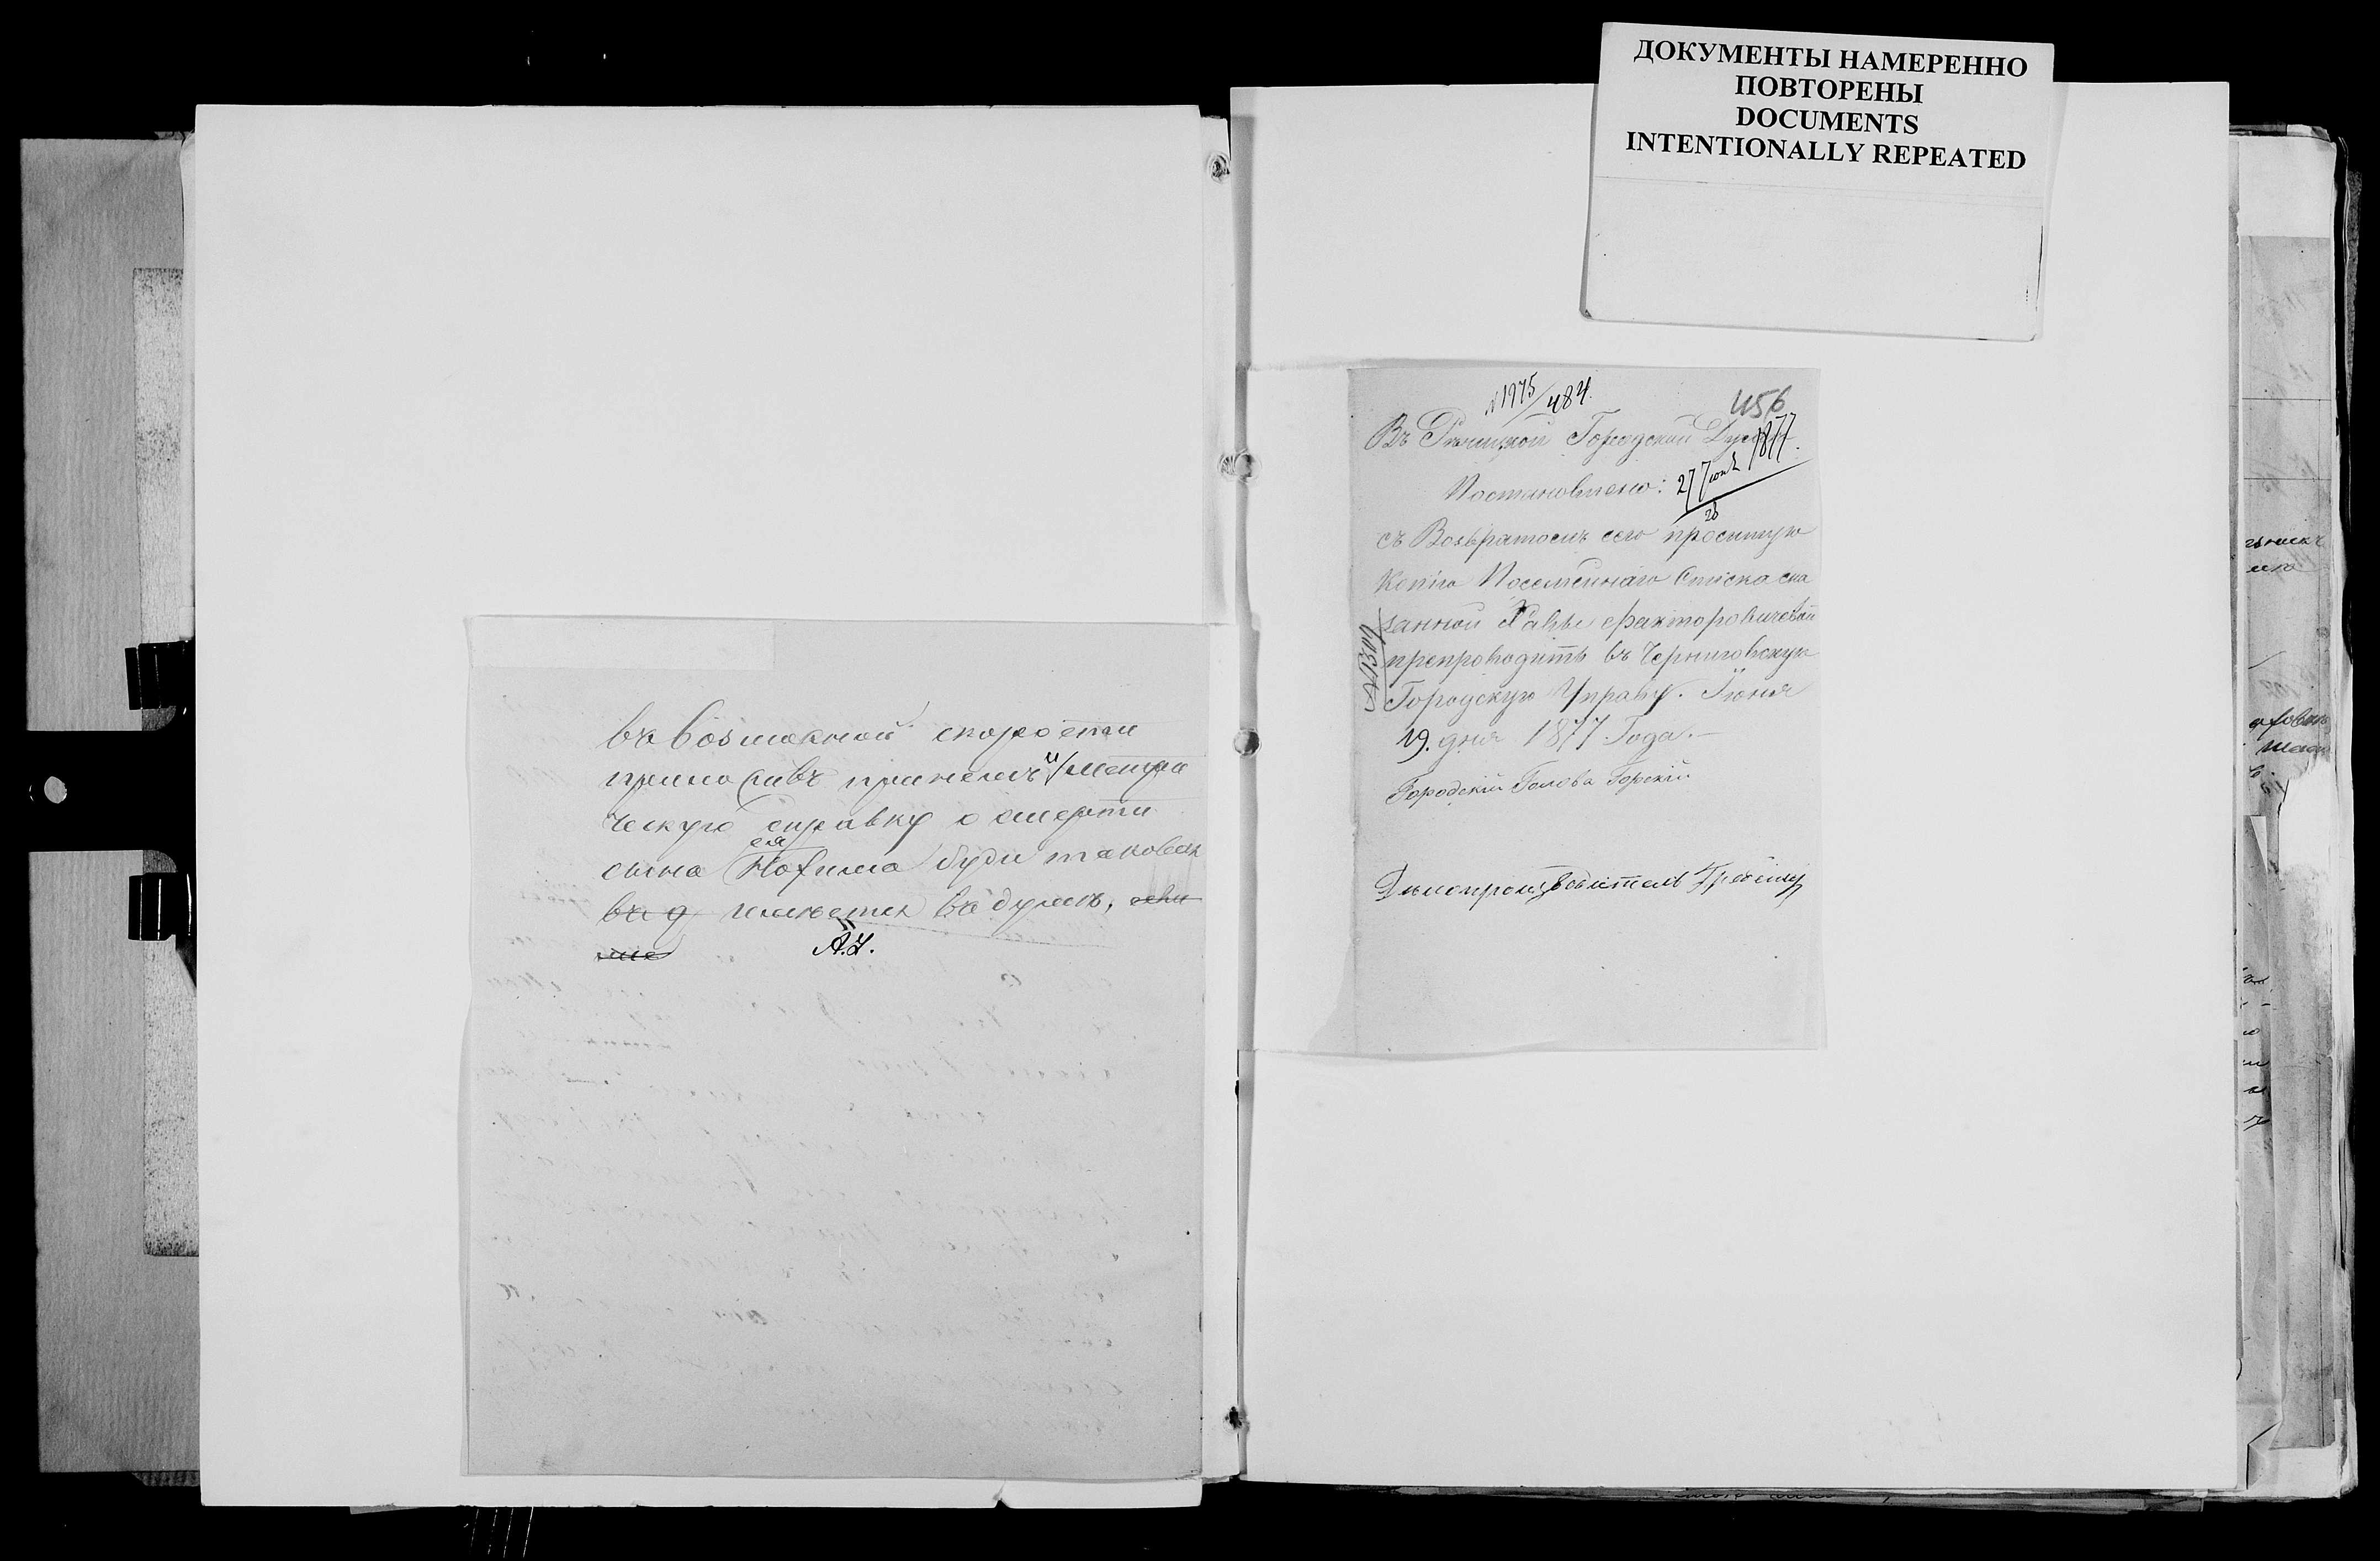 ДОКУМЕНТЫ НАМЕРЕННО
ПОВТОРЕНЫ
DOCUMENTS
INTENTIONALLY REPEATED
въ возможной скорости
приложивъ при немъ и метри
ческую справку о смерти
сына ея Нохима буди таковая
въ д имеется въ думе,
А.З.
№ 1975/484.
456
Въ Речицкой Городской Думе
27 Июня 1877.
Постановлено:
28
съ Возвратомъ сего просимую
Копiю Посемейнаго Списка ска
занной Хавы Факторовичевой
препроводить въ Черниговскую
Городскую Управу. Iюня
19. дня 1877 Года.—
Городскiй Голова Горскiй
Делопроизводитель